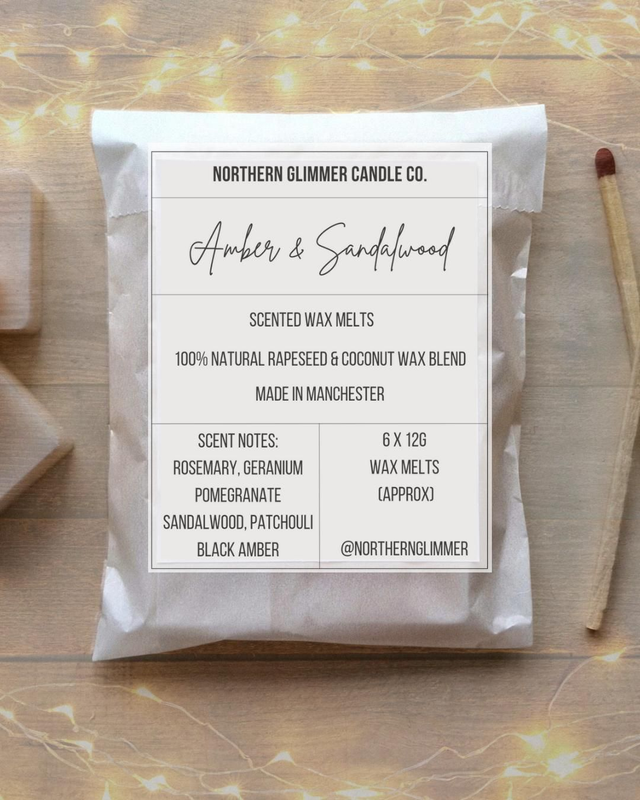 NORTHERN GLIMMER CANDLE CO.
Amber & Sandalwood
SCENTED WAX MELTS
100% NATURAL RAPESEED & COCONUT WAX BLEND
MADE IN MANCHESTER
SCENT NOTES:
ROSEMARY, GERANIUM
POMEGRANATE
SANDALWOOD, PATCHOULI
BLACK AMBER
6 X 12G
WAX MELTS
(APPROX)
@NORTHERNGLIMMER